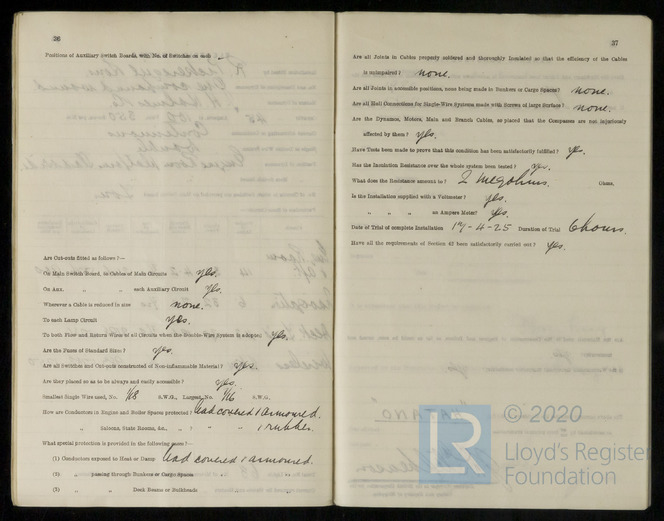 36
Positions of Auxiliary Switch Boards, with No. of Switches on each
Are Cut-outs fitted as follows?—
On Main Switch Board, to Cables of Main Circuits yes.
On Aux. " " each Auxiliary Circuit yes.
Wherever a Cable is reduced in size none.
To each Lamp Circuit yes.
To both Flow and Return Wires of all Circuits when the Double-Wire System is adopted yes.
Are the Fuses of Standard Sizes? yes.
Are all Switches and Cut-outs constructed of Non-inflammable Material? yes.
Are they placed so as to be always and easily accessible? yes.
Smallest Single Wire used, No. 1/18 S.W.G., Largest, No. 1/16 S.W.G.
How are Conductors in Engine and Boiler Spaces protected? lead covered & armoured.
" Saloons, State Rooms, &c., " ? " " & rubber.
What special protection is provided in the following cases?—
(1) Conductors exposed to Heat or Damp lead covered & armoured.
(2) " passing through Bunkers or Cargo Spaces " "
(3) " " Deck Beams or Bulkheads " "
37
Are all Joints in Cables properly soldered and thoroughly insulated so that the efficiency of the Cables
is unimpaired? none.
Are all Joints in accessible positions, none being made in Bunkers or Cargo Spaces? none.
Are all Hull Connections for Single-Wire Systems made with Screws of large Surface? none.
Are the Dynamos, Motors, Main and Branch Cables, so placed that the Compasses are not injuriously
affected by them? yes.
Have Tests been made to prove that this condition has been satisfactorily fulfilled? yes.
Has the Insulation Resistance over the whole system been tested? yes.
What does the Resistance amount to? 2 megohms. Ohms.
Is the Installation supplied with a Voltmeter? yes.
" " " an Ampere Meter? yes.
Date of Trial of complete Installation 17-4-25 Duration of Trial 6 hours.
Have all the requirements of Section 42 been satisfactorily carried out? yes.
LR
© 2020
Lloyd's Register
Foundation